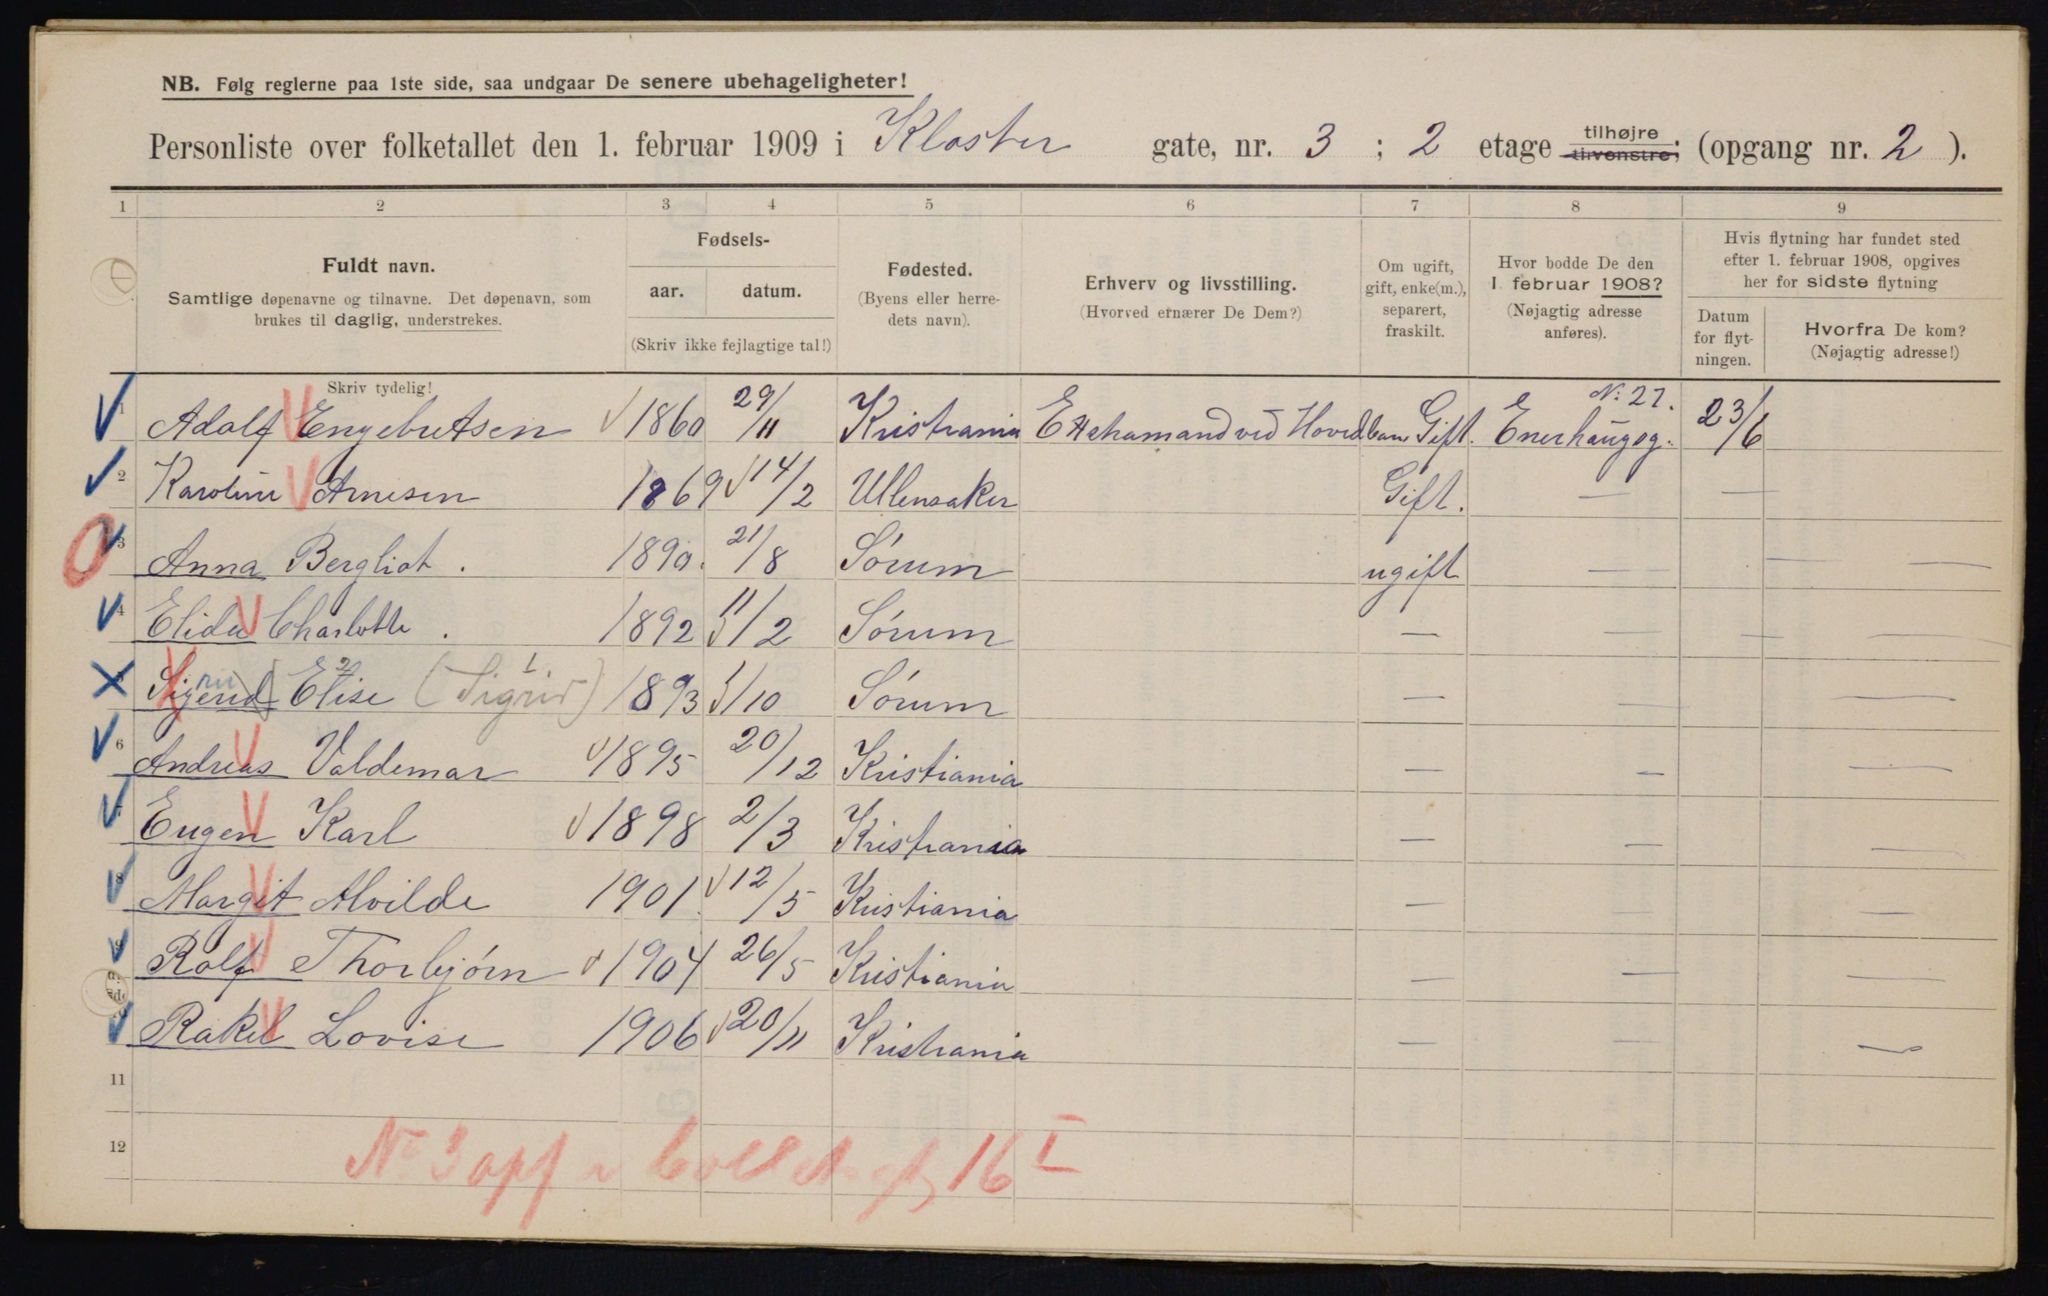 NB. Følg reglerne paa 1ste side, saa undgaar De senere ubehageligheter!
Personliste over folketallet den 1. februar 1909 i Kloster gate, nr. 3 ; 2 etage tilhøjre tilvenstre; (opgang nr. 2 ).
1 2 3 4 5 6 7 8 9
Fuldt navn.
Samtlige døpenavne og tilnavne. Det døpenavn, som
brukes til daglig, understrekes.
Fødsels-
aar. datum.
(Skriv ikke fejlagtige tal!)
Fødested.
(Byens eller herre-
dets navn).
Erhverv og livsstilling.
(Hvorved ernærer De Dem?)
Om ugift,
gift, enke(m.),
separert,
fraskilt.
Hvor bodde De den
1. februar 1908?
(Nøjagtig adresse
anføres).
Hvis flytning har fundet sted
efter 1. februar 1908, opgives
her for sidste flytning
Datum
for flyt-
ningen.
Hvorfra De kom?
(Nøjagtig adresse!)
Skriv tydelig!
1 Adolf Engebretsen 1860 29/11 Kristiania Extramand ved Hovedban Gift. Enerhaugsg. N. 27. 23/6
2 Karoline Arnesen 1869 14/2 Ullensaker Gift. — —
3 Anna Bergliot. 1890. 21/8 Sörum ugift — — —
4 Elida Charlotte. 1892 11/2 Sörum — — — —
Elise 2 (Sigrid) 1 1893 5/10 Sörum — — —
6 Andreas Valdemar 1895 20/12 Kristiania — — —
Eugen Karl 1898 2/3 Kristiania — — —
8 Margit Alvilde 1901 12/5 Kristiania — — —
9 Rolf Thorbjörn 1904 26/5 Kristiania — — —
Rakel Lovise 1906 20/11 Kristiania — — —
11
12
No 3 opg 16 I